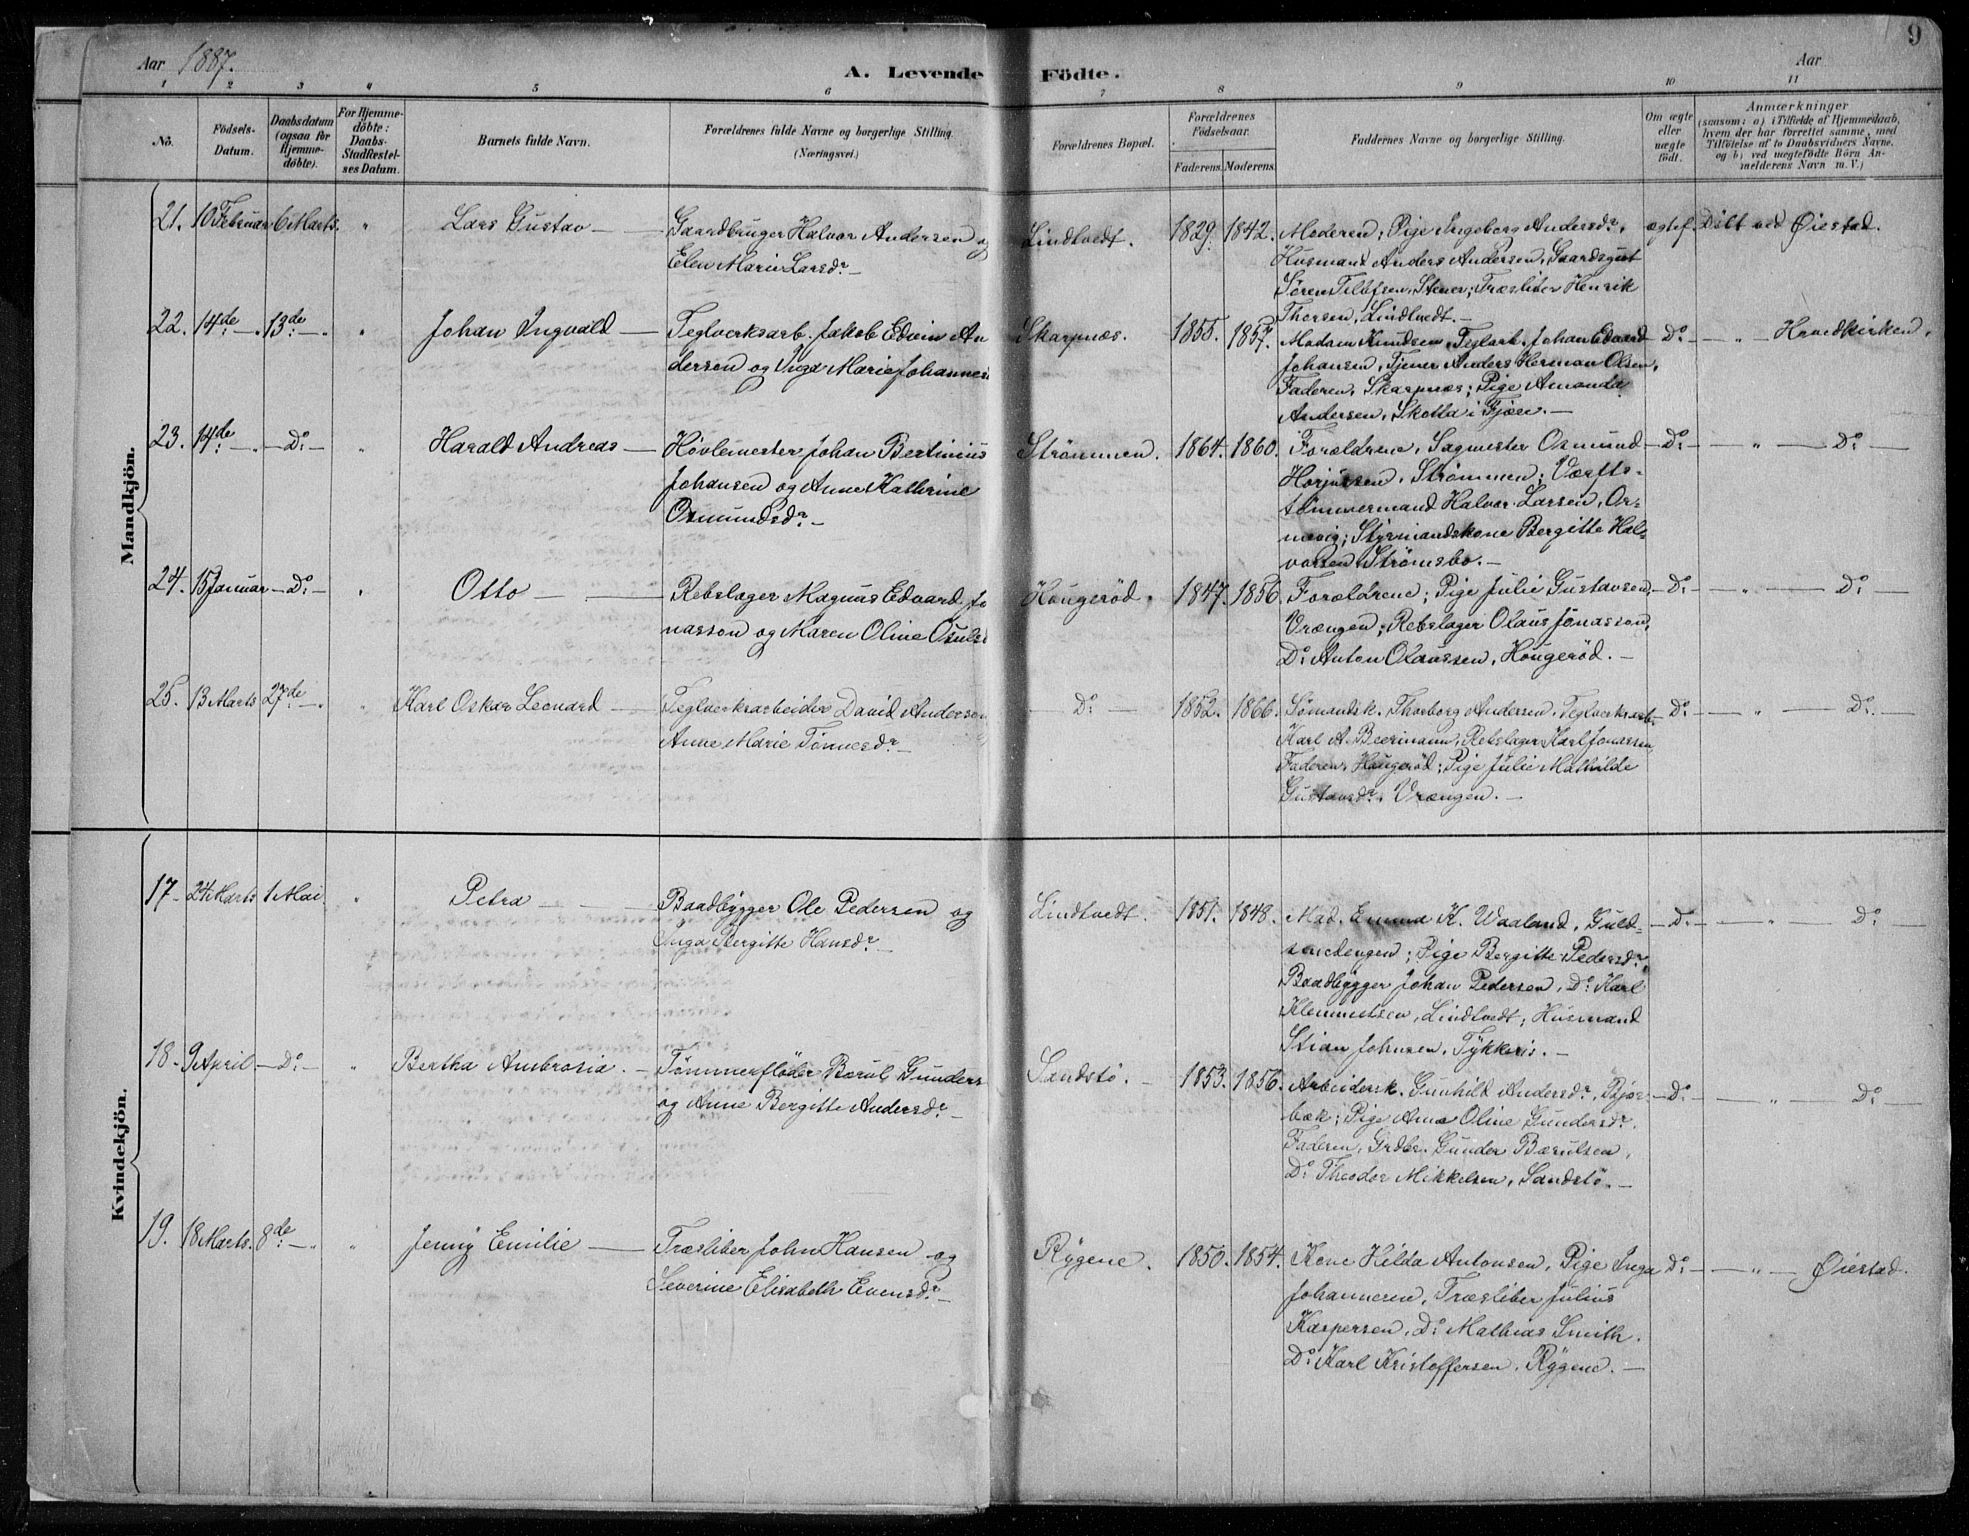 Aar 1887.
A. Levende Födte.
Aar
9
1 2 3 4 5 6 7 8 9 10 11
No.
Födsels-Datum.
Daabsdatum (ogsaa for Hjemmedöbte).
For Hjemmedöbte: Daabs-Stadfestelses Datum.
Barnets fulde Navn.
Forældrenes fulde Navne og borgerlige Stilling. (Næringsvei.)
Forældrenes Bopæl.
Forældrenes Födselsaar.
Faderens. Moderens.
Faddernes Navne og borgerlige Stilling.
Om ægte eller uægte födt.
Anmærkninger
(saasom: a) i Tilfælde af Hjemmedaab, hvem der har forrettet samme, med Tilföielse af to Daabsvidners Navne. og b) ved uegtefödte Börn Anmelderens Navn m. V.)
Mandkjön.
21. 10 Februar 6 Marts. " Lars Gustav —
Gaardbruger Halvor Andersen og
Elen Marie Larsdr. —
Lindtvedt. 1829. 1842.
Moderen; Pige Ingeborg Andersdr.,
Husmand Anders Andersen, Gaardsgut
Søren Tellefsen, Stener; Træsliber Henrik
Thorsen, Lindtvedt. —
ægtef. Döbt ved Øiestad.
22. 14de —„ 13de —„ " Johan Ingvald —
Teglverksarb. Jakob Edvin An
dersen og Inga Marie Johannesd
Skarpnæs. 1855. 1857.
Madam Knudsen, Teglarb. Johan Edvard
Johansen, Tjener Anders Herman Olsen,
Faderen, Skarpnæs; Pige Amanda
Andersen, Skotta i Fjære. —
Do — „ — Hovedkirken.
23. 14de —„ — Do — " Harald Andreas —
Høvlemester Johan Bertinius
Johansen og Anne Kathrine
Osmundsdr. —
Strømmen. 1864. 1860.
Forældrene, Sagmester Osmund
Strømmen; Værfts-
tømmermand Halvor Larsen, Or-
nævig; Styrmandskone Bergitte Hal-
vorsen Strømsbo. —
Do — „ — Do —
24. 15 Januar — Do — " Otto —
Rebslager Magnus Edvard Jo
nassen og Maren Oline Osulsd
Hougerød. 1847. 1856.
Forældrene; Pige Julie Gustavsen,
Vrængen; Rebslager Olaus Jonassen,
Do Anton Olaussen, Hougerød. —
Do — „ — Do —
25. 13 Marts 27de —„ " Karl Oskar Leonard —
Teglverksarbeider David Andersen
Anne Marie Tønnesdr. —
Do — 1852. 1866.
Sømandsk. Thorborg Andersen, Teglverksarb.
Karl A. Beermann, Rebslager Karl Jonassen
Faderen, Hougerød; Pige Julie Mathilde
Gustavsdr., Vrængen. —
Do — „ — Do
Kvindekjön.
17 — 24 Marts 1 Mai " Petra —
Baadbygger Ole Pedersen og
Inga Bergitte Hansdr. —
Lindtvedt. 1851. 1848.
Mad. Emma K. Waaland, Guld-
smedengen; Pige Bergitte Pedersdr.,
Baadbygger Johan Pedersen, Do Karl
Klemmetsen, Lindtvedt; Husmand
Stian Johnsen, Tykkeris. —
Do — „ — Do
18. 9 April — Do — " Bertha Ambrosia. —
Tømmerfløder Børul Gunders
og Anne Bergitte Andersdr. —
Sandstø. — 1853. 1856.
Arbeidersk. Gunhild Andersdr., Bjør-
bæk; Pige Anna Oline Gundersdr.,
Faderen, Grdbr. Gunder Børulsen,
Do Theodor Mikkelsen, Sandstø. —
Do — „ — Do —
19. 18 Marts. 8de —„ " Jenny Emilie —
Træsliber John Hansen og
Severine Elisabeth Evensdr. —
Rygene. 1850. 1854.
Kone Hilda Antonsen, Pige Inga
Johannesen, Træsliber Julius
Kaspersen, Do Mathias Smith.
Do Karl Kristoffersen, Rygene. —
Do — „ — Øiestad.